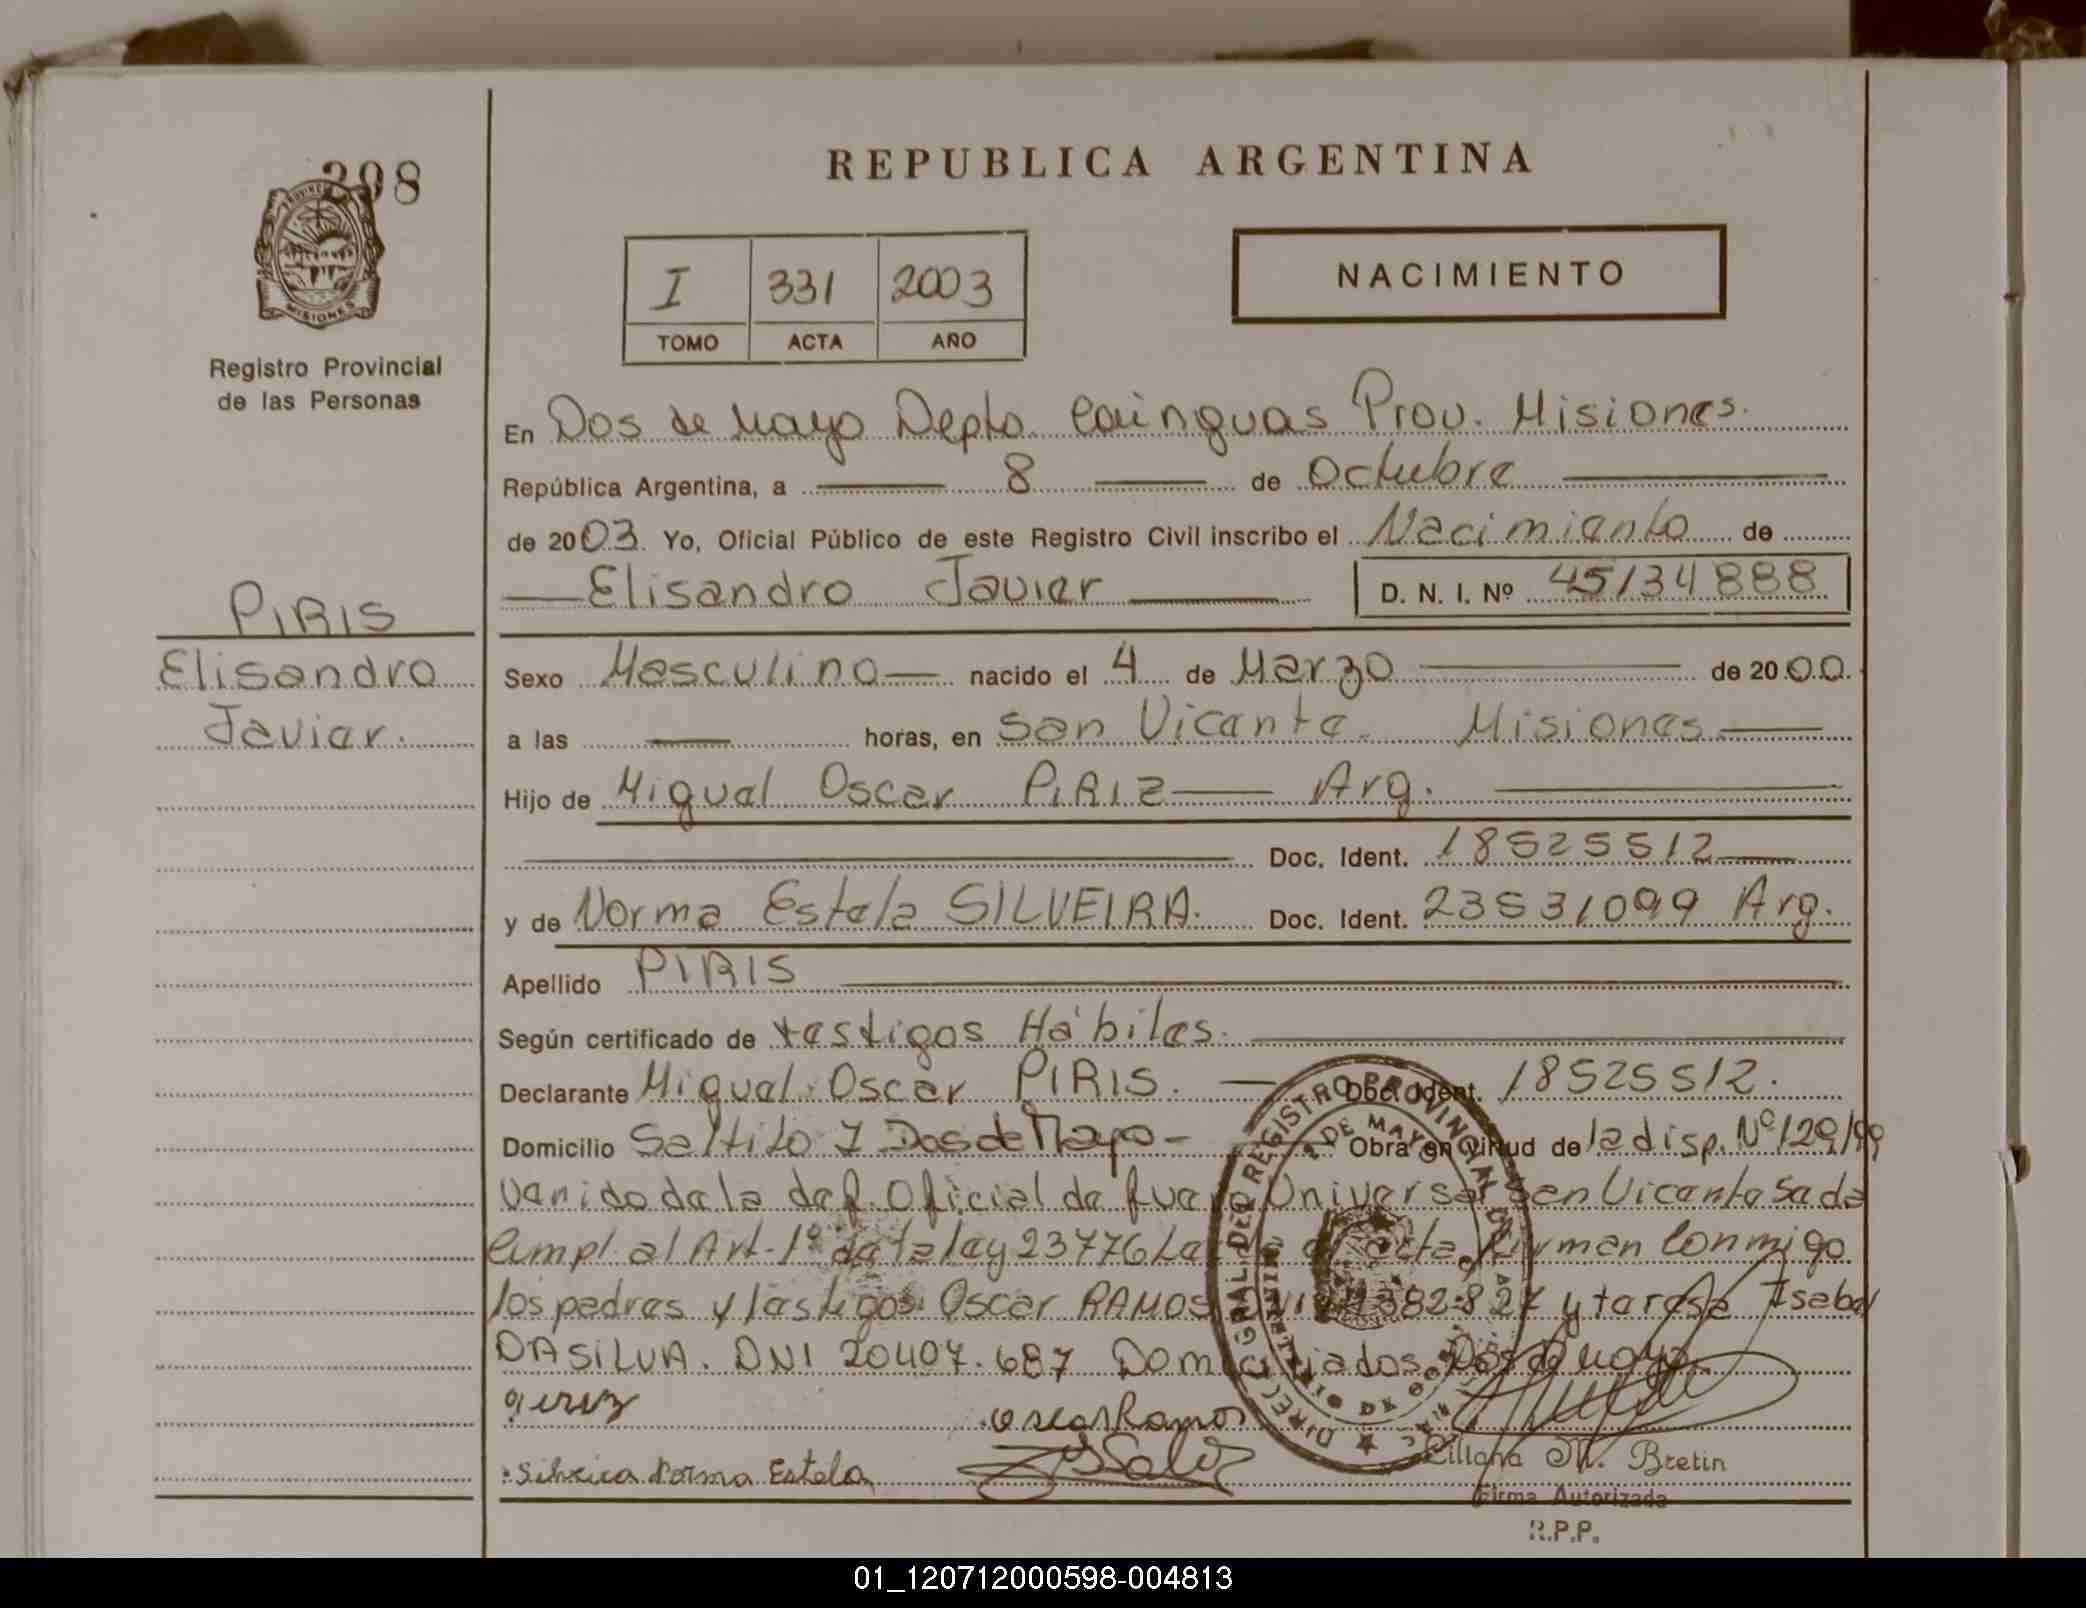 398
REPUBLICA ARGENTINA
PROVINCIA
MISIONES
Registro Provincial
de las Personas
I 331 2003
TOMO ACTA AÑO
NACIMIENTO
En Dos de Mayo Depto. Cainguas Prov. Misiones.
República Argentina, a 8 de Octubre
de 2003. Yo, Oficial Público de este Registro Civil inscribo el Nacimiento de
Elisandro Javier D. N. I. Nº 45134888
PIRIS
Elisandro
Javier.
Sexo Masculino nacido el 4 de Marzo de 2000.
a las horas, en San Vicente. Misiones
Hijo de Miguel Oscar PIRIZ Arg.
Doc. Ident. 18525512
y de Norma Estela SILVEIRA. Doc. Ident. 23531099 Arg.
Apellido PIRIS
Según certificado de testigos Hábiles.
Declarante Miguel Oscar PIRIS. Doc. Ident. 18525512.
Domicilio Saltito I Dos de Mayo - Obra en virtud de la disp. Nº 129/99
venido de la def. Oficial de Universal San Vicente Se da
Cumpl. al Art. 1º de la ley 23776 acta firman Conmigo
los padres y testigos Oscar RAMOS 382.827 y taresa Isabel
DASILVA. DNI 20407.687 Domiciliados Dos de Mayo
Oscar Ramos
Silveira Norma Estela
DIRECC. GRAL. DEL REGISTRO PROVINCIAL DE
2 DE MAYO
Liliana M. Bretin
Firma Autorizada
R.P.P.
01_120712000598-004813